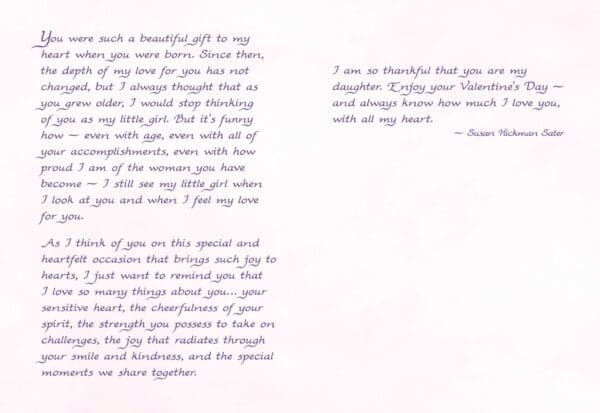 You were such a beautiful gift to my
heart when you were born. Since then,
the depth of my love for you has not
changed, but I always thought that as
you grew older, I would stop thinking
of you as my little girl. But it's funny
how ~ even with age, even with all of
your accomplishments, even with how
proud I am of the woman you have
become ~ I still see my little girl when
I look at you and when I feel my love
for you.
As I think of you on this special and
heartfelt occasion that brings such joy to
hearts, I just want to remind you that
I love so many things about you... your
sensitive heart, the cheerfulness of your
spirit, the strength you possess to take on
challenges, the joy that radiates through
your smile and kindness, and the special
moments we share together.
I am so thankful that you are my
daughter. Enjoy your Valentine's Day ~
and always know how much I love you,
with all my heart.
~ Susan Hickman Sater